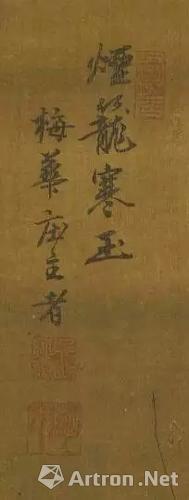 煙籠寒玉
梅華庵主者
Artron.Net